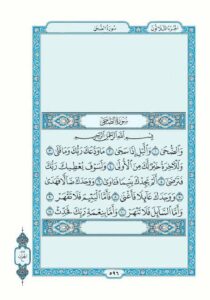 الجزء الثلاثون
سورة الضحى
سُورَةُ الضُّحَىٰ
بِسْمِ ٱللَّهِ ٱلرَّحْمَٰنِ ٱلرَّحِيمِ
وَٱلضُّحَىٰ ١ وَٱلَّيْلِ إِذَا سَجَىٰ ٢ مَا وَدَّعَكَ رَبُّكَ وَمَا قَلَىٰ ٣
وَلَلْآخِرَةُ خَيْرٌ لَّكَ مِنَ ٱلْأُولَىٰ ٤ وَلَسَوْفَ يُعْطِيكَ رَبُّكَ
فَتَرْضَىٰ ٥ أَلَمْ يَجِدْكَ يَتِيمًا فَـَٔاوَىٰ ٦ وَوَجَدَكَ ضَآلًّا فَهَدَىٰ
٧ وَوَجَدَكَ عَآئِلًا فَأَغْنَىٰ ٨ فَأَمَّا ٱلْيَتِيمَ فَلَا تَقْهَرْ ٩
وَأَمَّا ٱلسَّآئِلَ فَلَا تَنْهَرْ ١٠ وَأَمَّا بِنِعْمَةِ رَبِّكَ فَحَدِّثْ ١١
٥٩٦